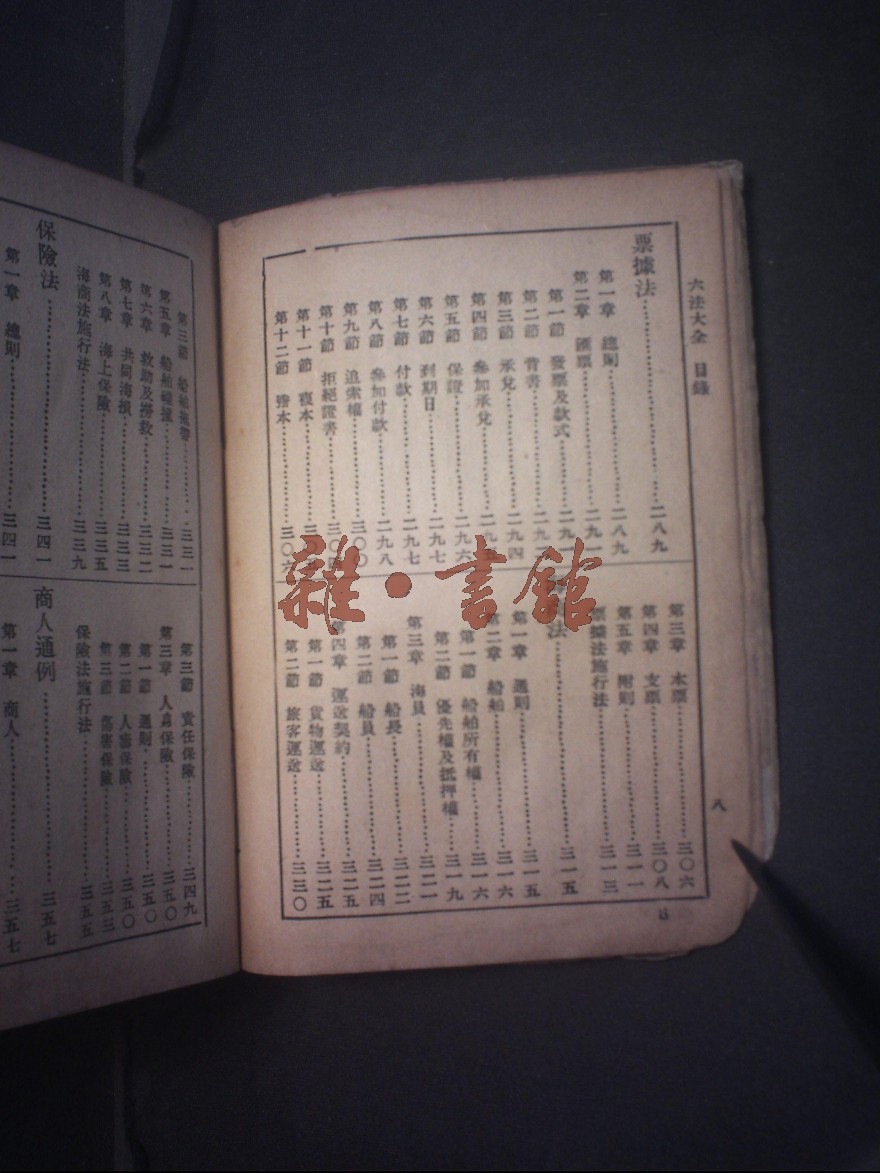 六法大全 目錄
票據法……二八九
第一章 總則……二八九
第二章 匯票……二九
第一節 發票及款式……二九
第二節 背書……二九
第三節 承兌……二九四
第四節 參加承兌……二九
第五節 保證……二九六
第六節 到期日……二九七
第七節 付款……二九七
第八節 參加付款……二九八
第九節 追索權……三〇〇
第十節 拒絕證書……三〇
第十一節 複本……三〇
第十二節 謄本……三〇六
第三章 本票……三〇六
第四章 支票……三〇八
第五章 附則……三一一
票據法施行法……三一三
法……三一五
第一章 通則……三一五
第二章 船舶……三一六
第一節 船舶所有權……三一六
第二節 優先權及抵押權……三一九
第三章 海員……三二一
第一節 船長……三二二
第二節 船員……三二四
第四章 運送契約……三二五
第一節 貨物運送……三二五
第二節 旅客運送……三三〇
八
8
第三節 船舶拖帶……三三一
第五章 船舶碰撞……三三一
第六章 救助及撈救……三三二
第七章 共同海損……三三三
第八章 海上保險……三三五
海商法施行法……三三九
保險法……三四一
第一章 總則……三四一
第三節 責任保險……三四九
第三章 人身保險……三五〇
第一節 通則……三五〇
第二節 人壽保險……三五〇
第三節 傷害保險……三五三
保險法施行法……三五五
商人通例……三五七
第一章 商人……三五七
雜·書館